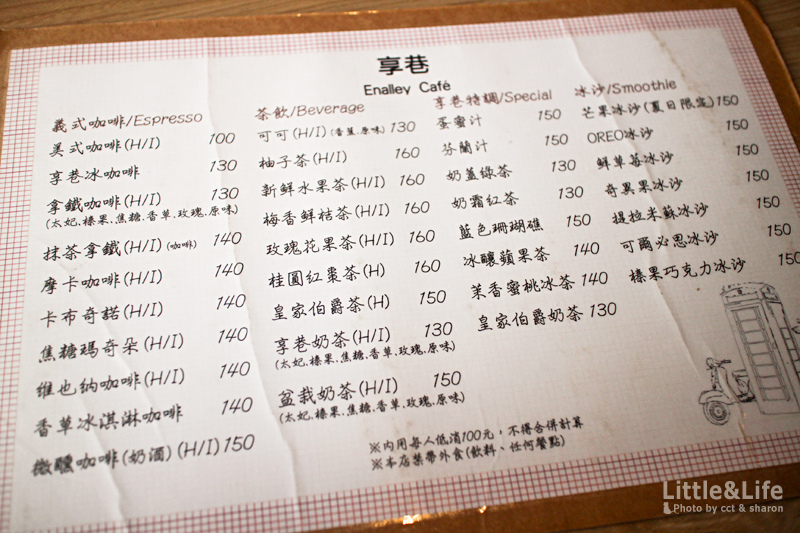 享巷
Enalley Café
義式咖啡/Espresso
美式咖啡(H/I) 100
享巷冰咖啡 130
拿鐵咖啡(H/I) 130
(太妃.榛果.焦糖.香草.玫瑰.原味)
抹茶拿鐵(H/I)(咖啡) 140
摩卡咖啡(H/I) 140
卡布奇諾(H/I) 140
焦糖瑪奇朵(H/I) 140
維也納咖啡(H/I) 140
香草冰淇淋咖啡 140
微醺咖啡(奶酒)(H/I) 150
茶飲/Beverage
可可(H/I)(香蕉.原味) 130
柚子茶(H/I) 160
新鮮水果茶(H/I) 160
梅香鮮桔茶(H/I) 160
玫瑰花果茶(H/I) 160
桂圓紅棗茶(H) 160
皇家伯爵茶(H) 150
享巷奶茶(H/I) 130
(太妃.榛果.焦糖.香草.玫瑰.原味)
盆栽奶茶(H/I) 150
(太妃.榛果.焦糖.香草.玫瑰.原味)
享巷特調/Special
蛋蜜汁 150
芬蘭汁 150
奶蓋綠茶 130
奶霜紅茶 130
藍色珊瑚礁 150
冰釀蘋果茶 140
茉香蜜桃冰茶 140
皇家伯爵奶茶 130
冰沙/Smoothie
芒果冰沙(夏日限定) 150
OREO冰沙 150
鮮草莓冰沙 150
奇異果冰沙 150
提拉米蘇冰沙 150
可爾必思冰沙 150
榛果巧克力冰沙 150
※內用每人低消100元,不得合併計算
※本店禁帶外食(飲料、任何餐點)
Little&Life
Photo by cct & sharon